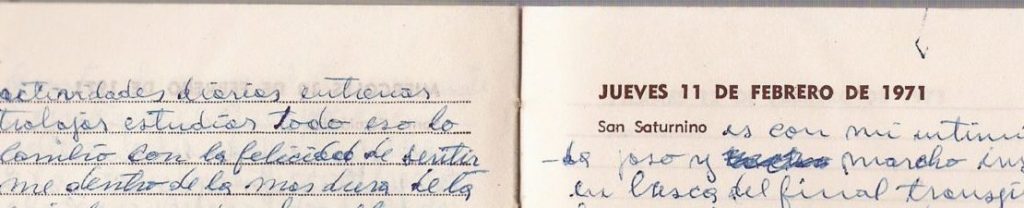 actividades diarias entrenas
trabajas estudias todo eso lo
cambio con la felicidad de sentir
me dentro de la mas dura de la
JUEVES 11 DE FEBRERO DE 1971
San Saturnino es con mi intimi
y marcho
en busca del final